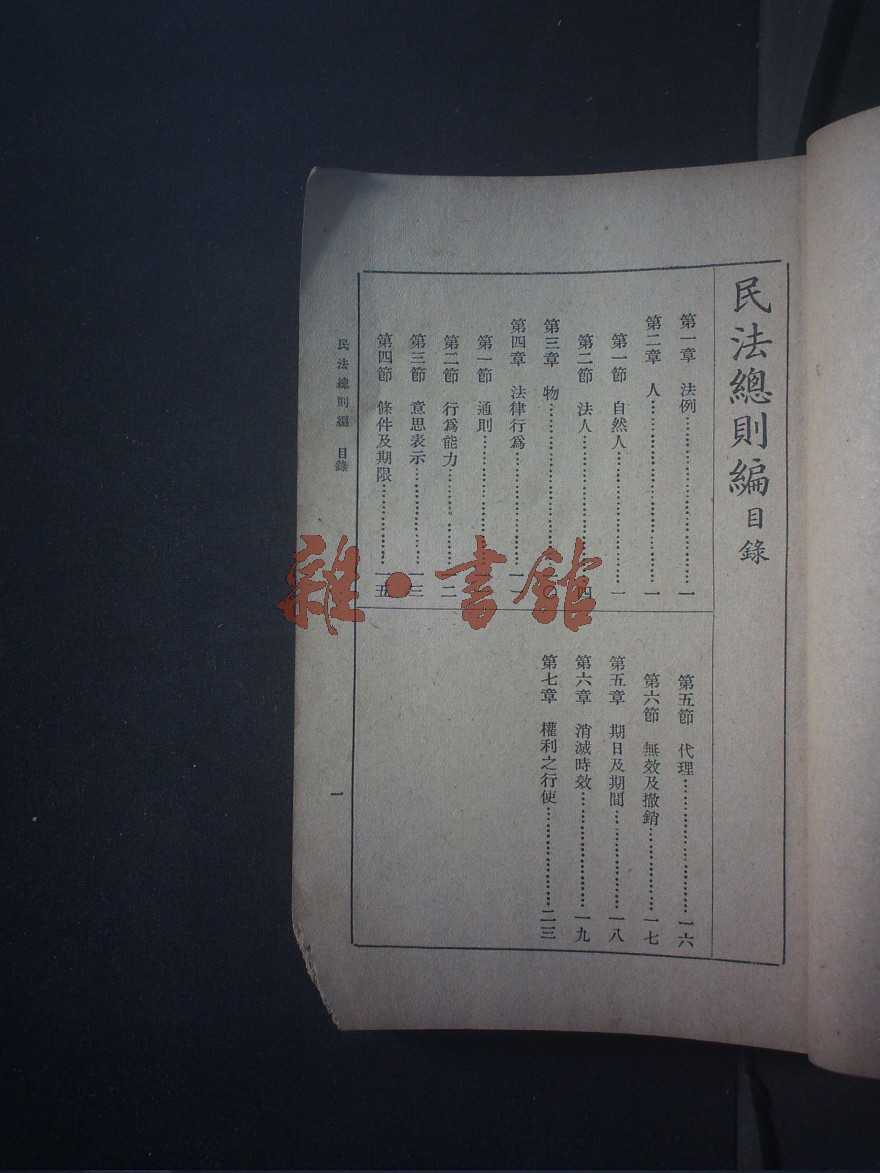 民法總則編目錄
第一章 法例……一
第二章 人……一
第一節 自然人……一
第二節 法人……四
第三章 物……
第四章 法律行爲……一一
第一節 通則……
第二節 行爲能力……一二
第三節 意思表示……一三
第四節 條件及期限……一五
第五節 代理……一六
第六節 無效及撤銷……一七
第五章 期日及期間……一八
第六章 消滅時效……一九
第七章 權利之行使……二三
民法總則編 目錄
一
雜·書館